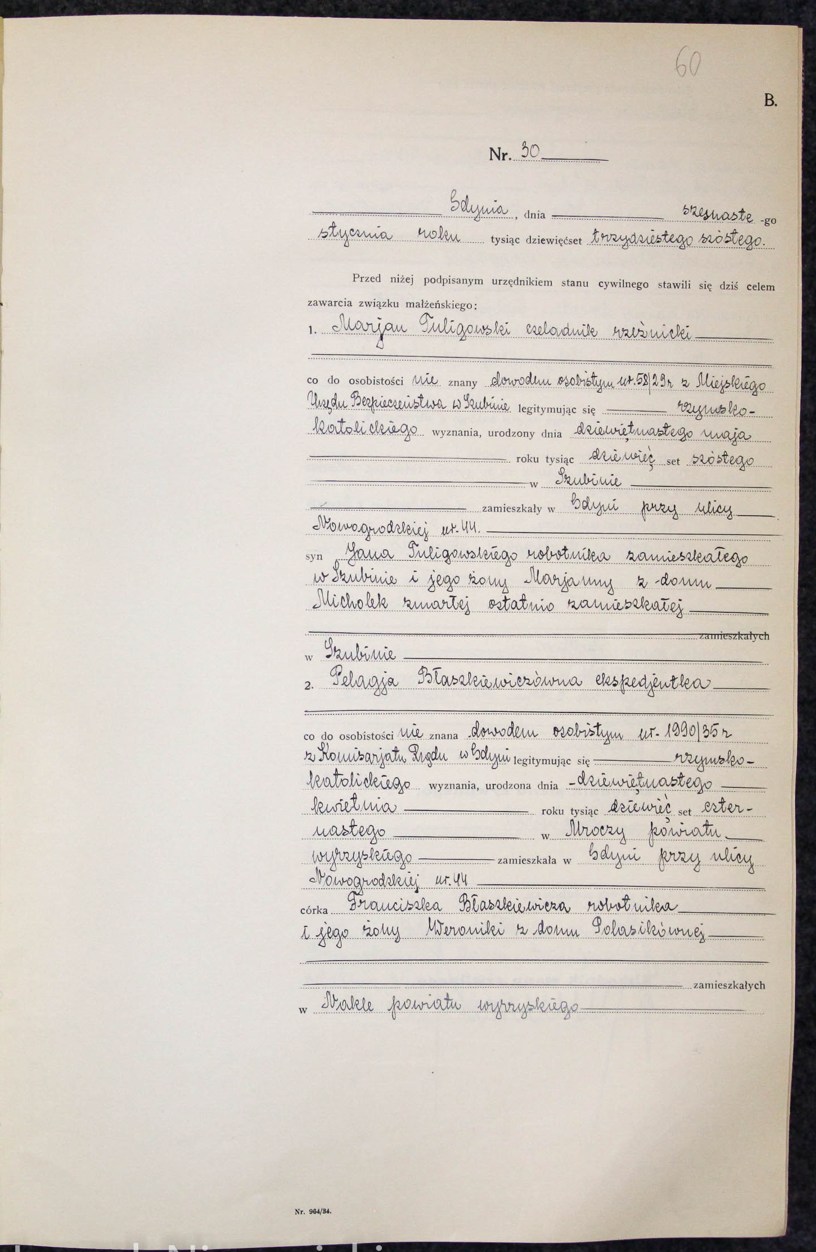 60
B.
Nr. 30
Gdynia, dnia szesnaste -go
stycznia roku tysiąc dziewięćset trzydziestego szóstego.
Przed niżej podpisanym urzędnikiem stanu cywilnego stawili się dziś celem
zawarcia związku małżeńskiego:
1. Marjan Tuligowski czeladnik rzeźnicki
co do osobistości nie znany dowodem osobistym nr. 58/29 r z Miejskiego
Urzędu Bezpieczeństwa w Szubinie legitymując się rzymsko-
katolickiego wyznania, urodzony dnia dziewiętnastego maja
roku tysiąc dziewięć set szóstego
w Szubinie
zamieszkały w Gdyni przy ulicy
Nowogrodzkiej nr. 44.
syn Jana Tuligowskiego robotnika zamieszkałego
w Szubinie i jego żony Marjanny z domu
Michołek zmarłej ostatnio zamieszkałej
zamieszkałych
w Szubinie
2. Pelagja Błaszkiewiczówna ekspedjentka
co do osobistości nie znana dowodem osobistym nr. 1990/35 r
z Komisarjatu Rządu w Gdyni legitymując się rzymsko-
katolickiego wyznania, urodzona dnia dziewiętnastego
kwietnia roku tysiąc dziewięć set czter-
nastego w Mroczy powiatu
wyrzyskiego zamieszkała w Gdyni przy ulicy
Nowogrodzkiej nr. 44
córka Franciszka Błaszkiewicza robotnika
i jego żony Weroniki z domu Polasikównej
zamieszkałych
w Nakle powiatu wyrzyskiego
Nr. 964/34.